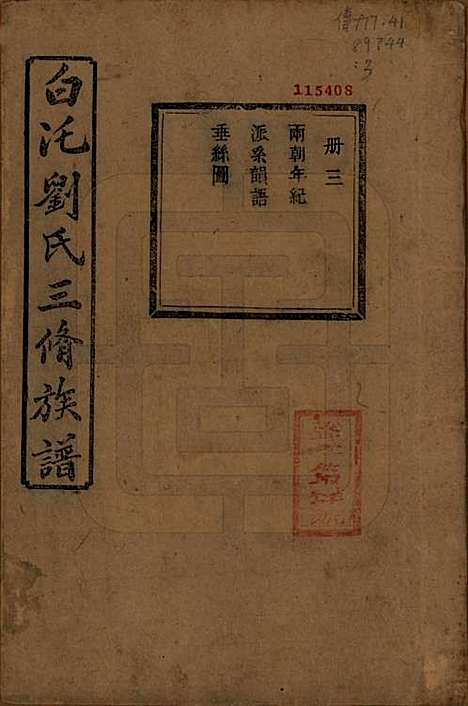 傳777.41
89744
:3
115408
册三
兩朝年紀
派系韻語
垂絲圖
白沱劉氏三脩族譜